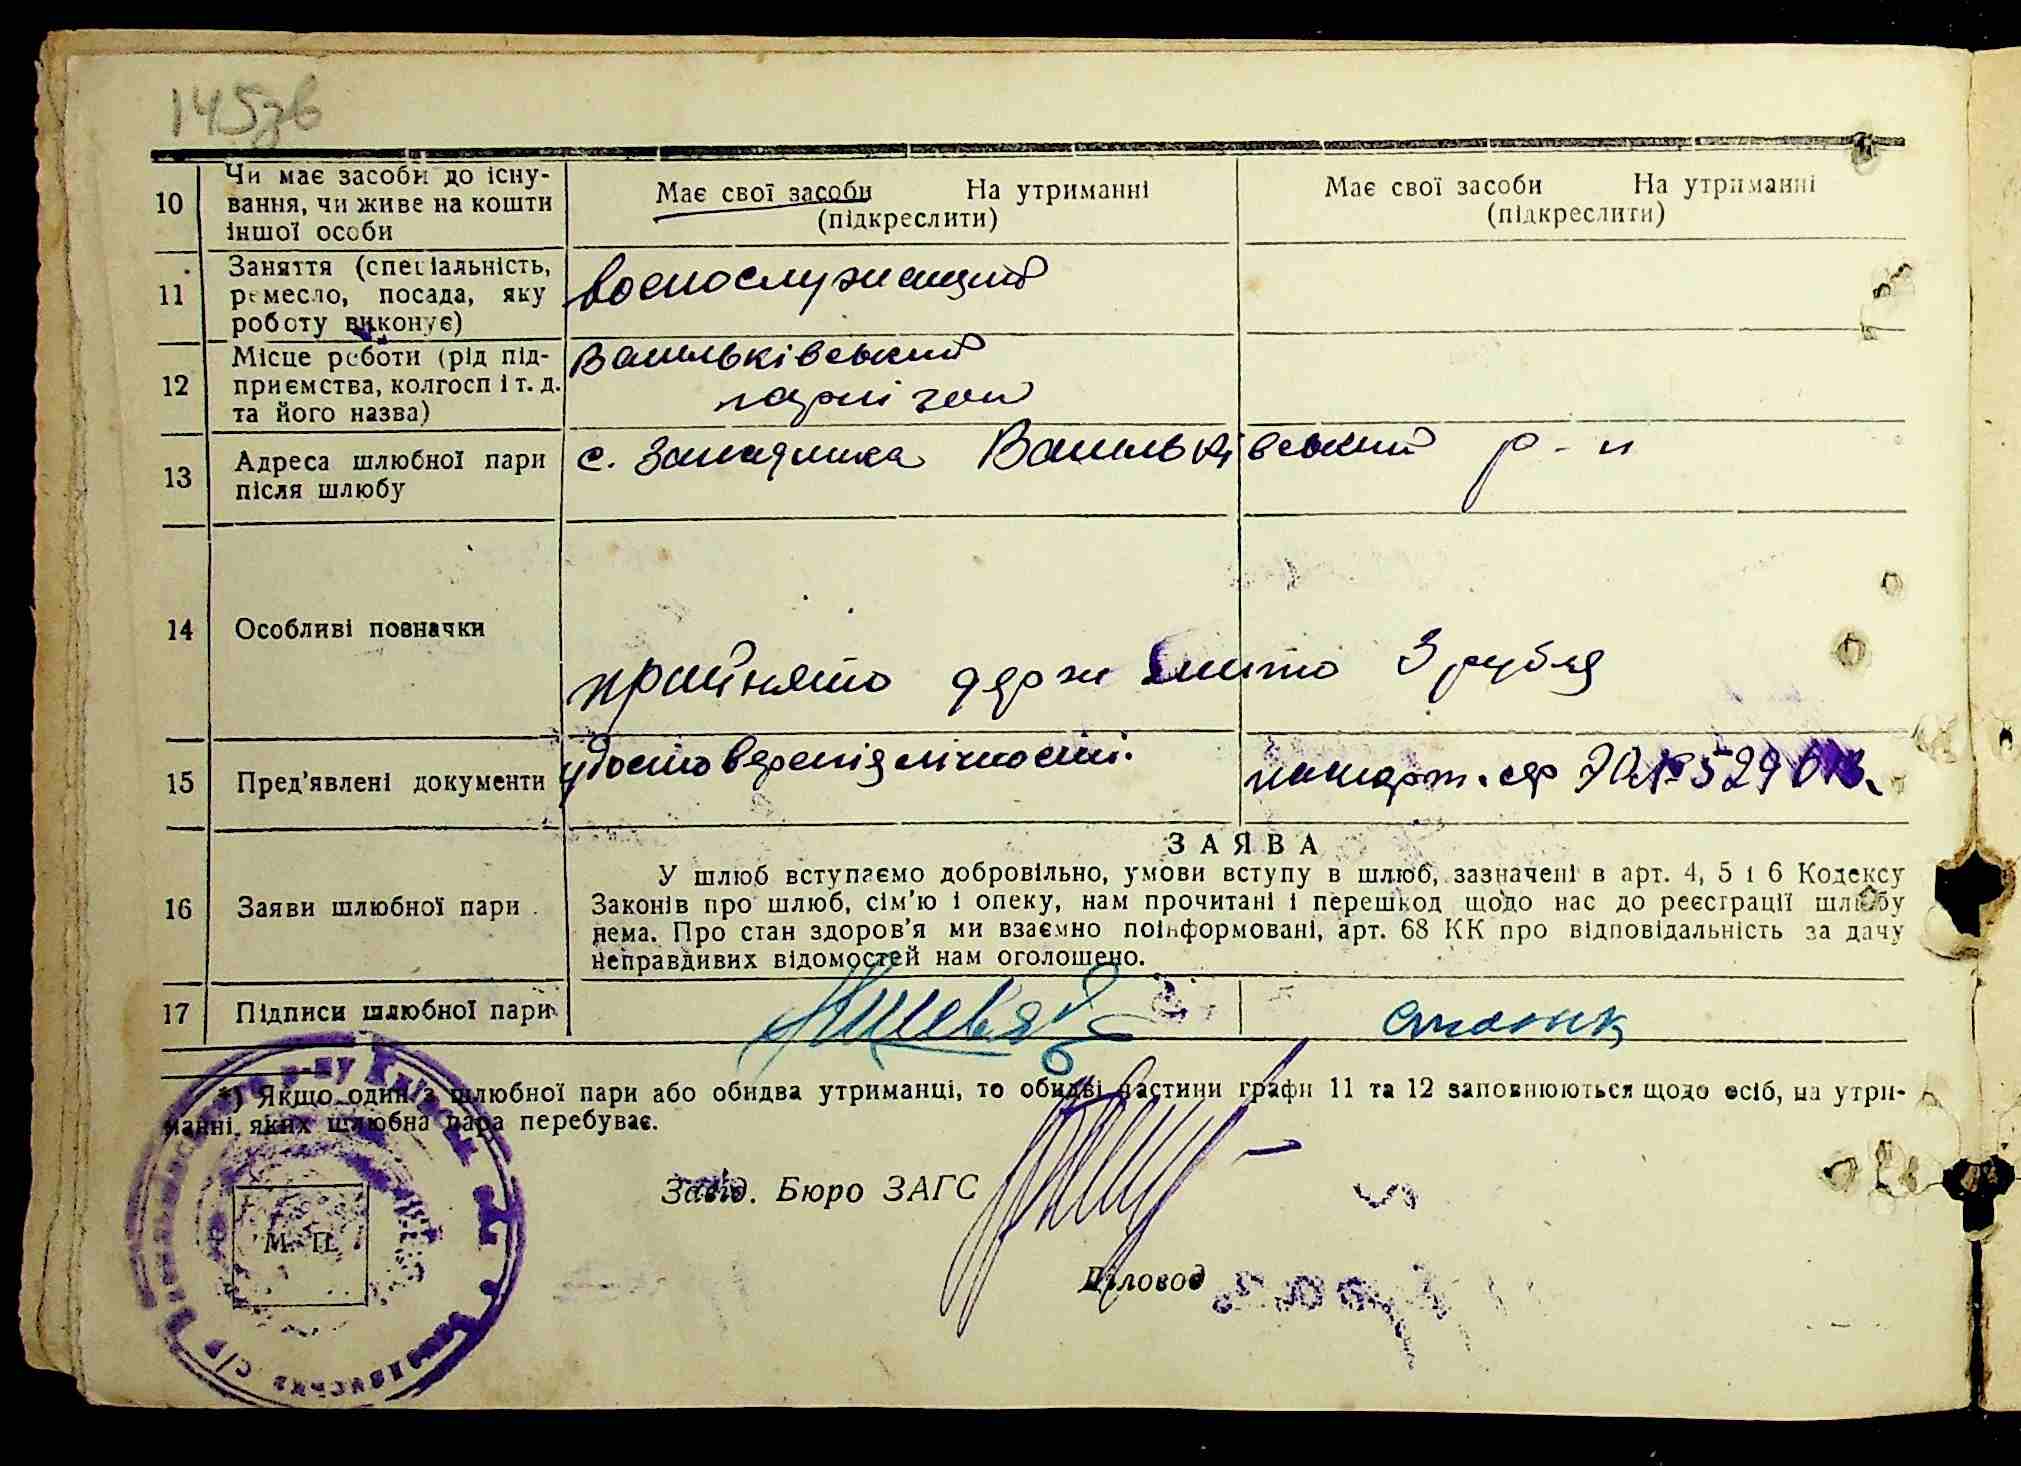 145зв
10
Чи має засоби до існу-
вання, чи живе на кошти
іншої особи
Має свої засоби На утриманні
(підкреслити)
Має свої засоби На утриманні
(підкреслити)
11
Заняття (спеціальність,
ремесло, посада, яку
роботу виконує)
воєнослужащий
12
Місце роботи (рід під-
приємства, колгосп і т. д.
та його назва)
Васильківський
гарнізон
13
Адреса шлюбної пари
після шлюбу
с. Западинка Васильківський р-н
14
Особливі позначки
прийнято держ мито 3 рубля
15
Пред’явлені документи
удостоверенія лічності.
пашпорт. сер № 529
16
Заяви шлюбної пари
ЗАЯВА
У шлюб вступаємо добровільно, умови вступу в шлюб, зазначені в арт. 4, 5 і 6 Кодексу
Законів про шлюб, сім’ю і опеку, нам прочитані і перешкод щодо нас до реєстрації шлюбу
нема. Про стан здоров’я ми взаємно поінформовані, арт. 68 КК про відповідальність за дачу
неправдивих відомостей нам оголошено.
17
Підписи шлюбної пари
*) Якщо один з шлюбної пари або обидва утриманці, то обидві частини графи 11 та 12 заповнюються щодо осіб, на утри-
манні яких шлюбна пара перебуває.
Завід. Бюро ЗАГС
М. П.
Діловод